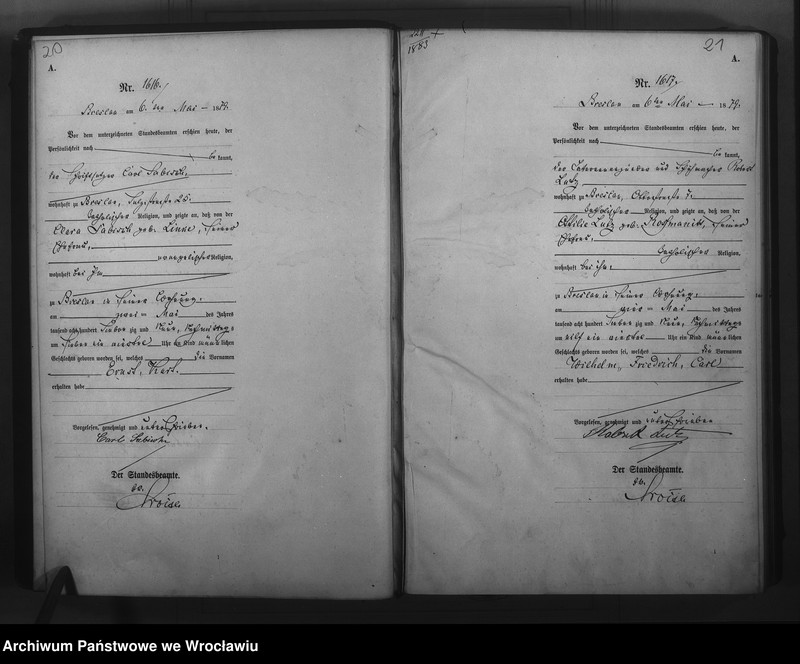 20
A.
Nr. 1616.
Breslau am 6. ten Mai 1879.
Vor dem unterzeichneten Standesbeamten erschien heute, der
Persönlichkeit nach
be kannt,
der Schriftsetzer Carl Sabisch,
wohnhaft zu Breslau, 25.
katholischer Religion, und zeigte an, daß von der
Clara Sabisch geb. Linke, seiner
Ehefrau,
evangelischer Religion,
wohnhaft bei ihm
zu Breslau in seiner Wohnung,
am zwei ten Mai des Jahres
tausend acht hundert sieben zig und neun, Nachmittags
um sieben ein viertel Uhr ein Kind männ lichen
Geschlechts geboren worden sei, welches die Vornamen
Ernst, Karl
erhalten habe
Vorgelesen, genehmigt und unterschrieben.
Carl Sabisch.
Der Standesbeamte.
21
228
1883
A.
Nr. 1617.
Breslau am 6 ten Mai 1879.
Vor dem unterzeichneten Standesbeamten erschien heute, der
Persönlichkeit nach
be kannt,
der und Robert
Lutz
wohnhaft zu Breslau, 7.
katholischer Religion, und zeigte an, daß von der
Ottilie Lutz geb. seiner
Ehefrau,
katholischer Religion,
wohnhaft bei ihm
zu Breslau in seiner Wohnung,
am ten Mai des Jahres
tausend acht hundert sieben zig und neun, Nachmittags
um elf ein viertel Uhr ein Kind männ lichen
Geschlechts geboren worden sei, welches die Vornamen
Wilhelm, Friedrich, Carl
erhalten habe
Vorgelesen, genehmigt und unterschrieben
Robert Lutz
Der Standesbeamte.
Archiwum Państwowe we Wrocławiu